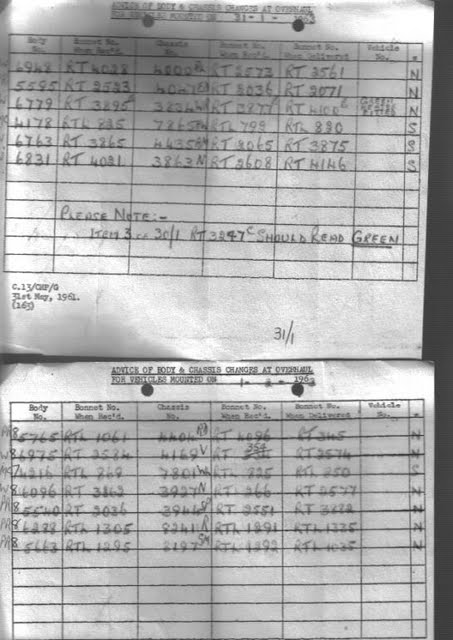 ADVICE OF BODY & CHASSIS CHANGES AT OVERHAUL
FOR VEHICLES MOUNTED ON 31-1-
Body No. Bonnet No. When Rec'd. Chassis No. Bonnet No. When Rec'd. Bonnet No. When Delivered Vehicle No.
6948 RT 4028 RT 2573 RT 2561 N
5595 RT 2533 RT 2036 RT 2071 N
6779 RT 3895 RT 3877 N
4178 RTL 825 RTL 799 RTL 820 S
6763 RT 3865 RT 2065 RT 3875 S
6831 RT 4021 3863 N RT 2608 RT 4146 S
PLEASE NOTE:-
ITEM 3 on 30/1 RT 3247 C SHOULD READ GREEN
C.13/CMF/G
31st May, 1961.
(163)
31/1
ADVICE OF BODY & CHASSIS CHANGES AT OVERHAUL
FOR VEHICLES MOUNTED ON 1-2-1963
Body No. Bonnet No. When Rec'd. Chassis No. Bonnet No. When Rec'd. Bonnet No. When Delivered Vehicle No.
PR8 5765 RTL 1061 RT 4096 RT 345 N
W8 6975 RT 2584 4169 V RT RT 2574 N
7216 RTL 869 7801 RTL 825 RTL 850 S
W8 6096 RT 3862 3927 N RT 266 RT 2577 N
PR8 5540 RT 2026 RT 2551 N
PR8 6288 RTL 1305 8241 R RTL 1291 RTL 1335 N
PR8 5663 RTL 1295 8197 RTL 1292 RTL 1035 N